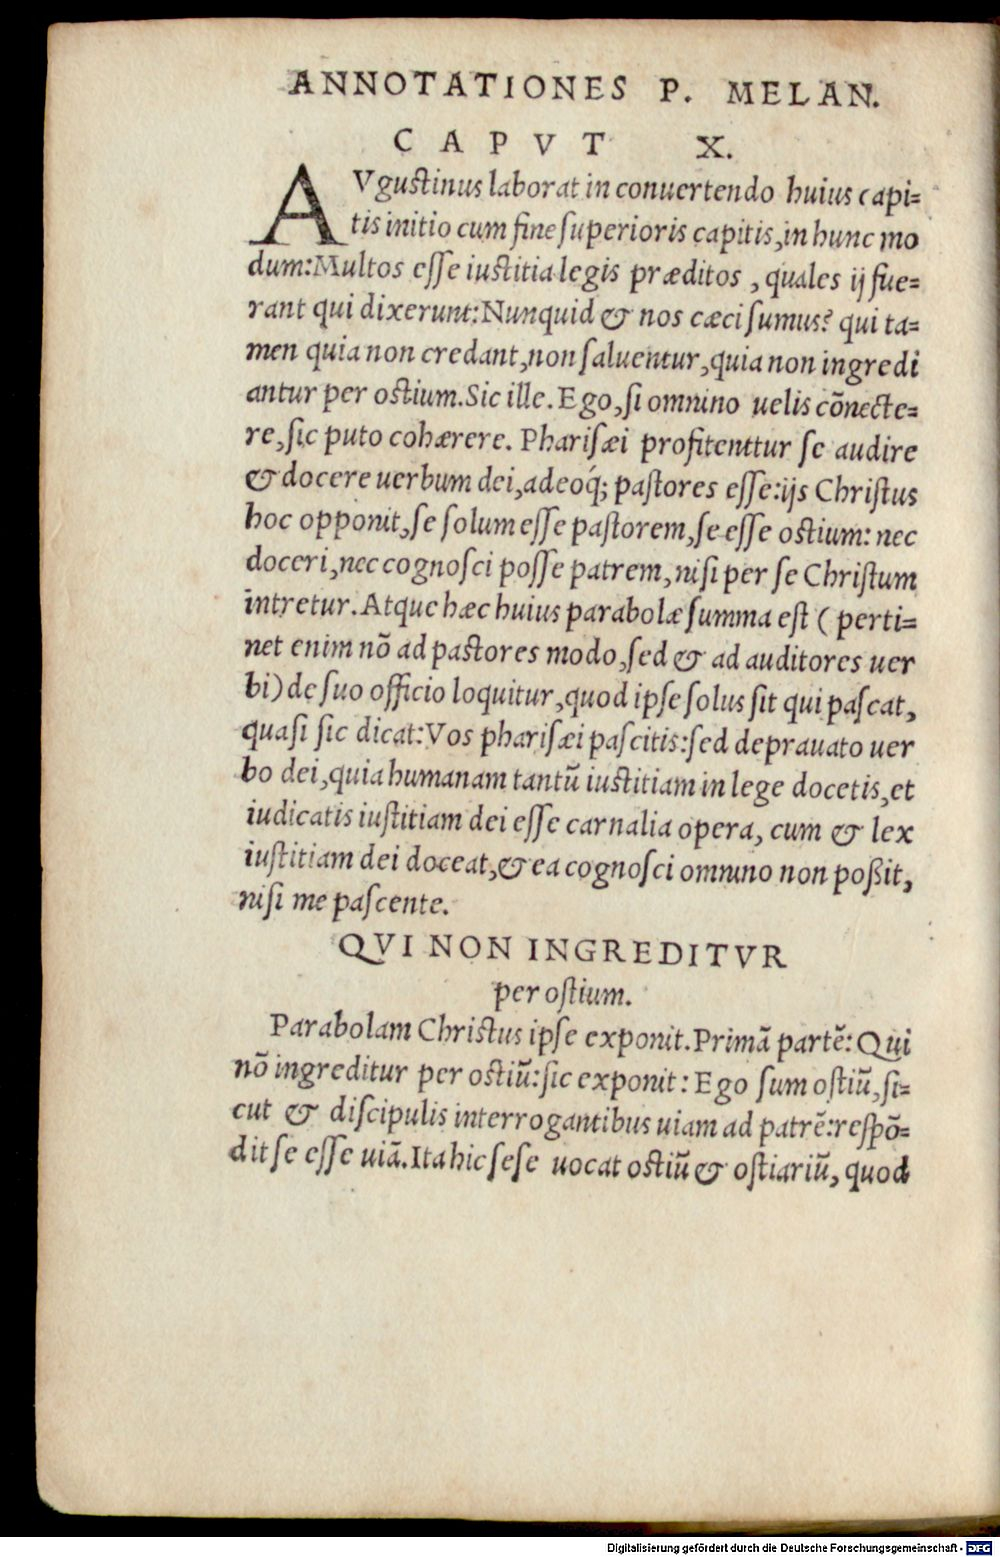 ANNOTATIONES P. MELAN.
CAPVT X.
AVgustinus laborat in conuertendo huius capi=
tis initio cum fine superioris capitis,in hunc mo
dum:Multos esse iustitia legis præditos , quales ij fue=
rant qui dixerunt:Nunquid & nos cæci sumus? qui ta=
men quia non credant,non saluentur,quia non ingredi
antur per ostium.Sic ille. Ego,si omnino uelis cõnecte=
re,sic puto cohærere. Pharisæi profitentur se audire
& docere uerbum dei,adeoq́; pastores esse:ijs Christus
hoc opponit,se solum esse pastorem,se esse ostium: nec
doceri,nec cognosci posse patrem,nisi per se Christum
intretur.Atque hæc huius parabolæ summa est ( perti=
net enim nõ ad pastores modo,sed & ad auditores uer
bi) de suo officio loquitur,quod ipse solus sit qui pascat,
quasi sic dicat:Vos pharisæi pascitis:sed deprauato uer
bo dei,quia humanam tantũ iustitiam in lege docetis,et
iudicatis iustitiam dei esse carnalia opera, cum & lex
iustitiam dei doceat,& ea cognosci omnino non poßit,
nisi me pascente.
QVI NON INGREDITVR
per ostium.
Parabolam Christus ipse exponit.Primã partẽ: Qui
nõ ingreditur per ostiũ:sic exponit: Ego sum ostiũ,si-
cut & discipulis interrogantibus uiam ad patrẽ:respõ=
dit se esse uiã.Ita hic sese uocat ostiũ & ostiariũ, quod
Digitalisierung gefördert durch die Deutsche Forschungsgemeinschaft - DFG